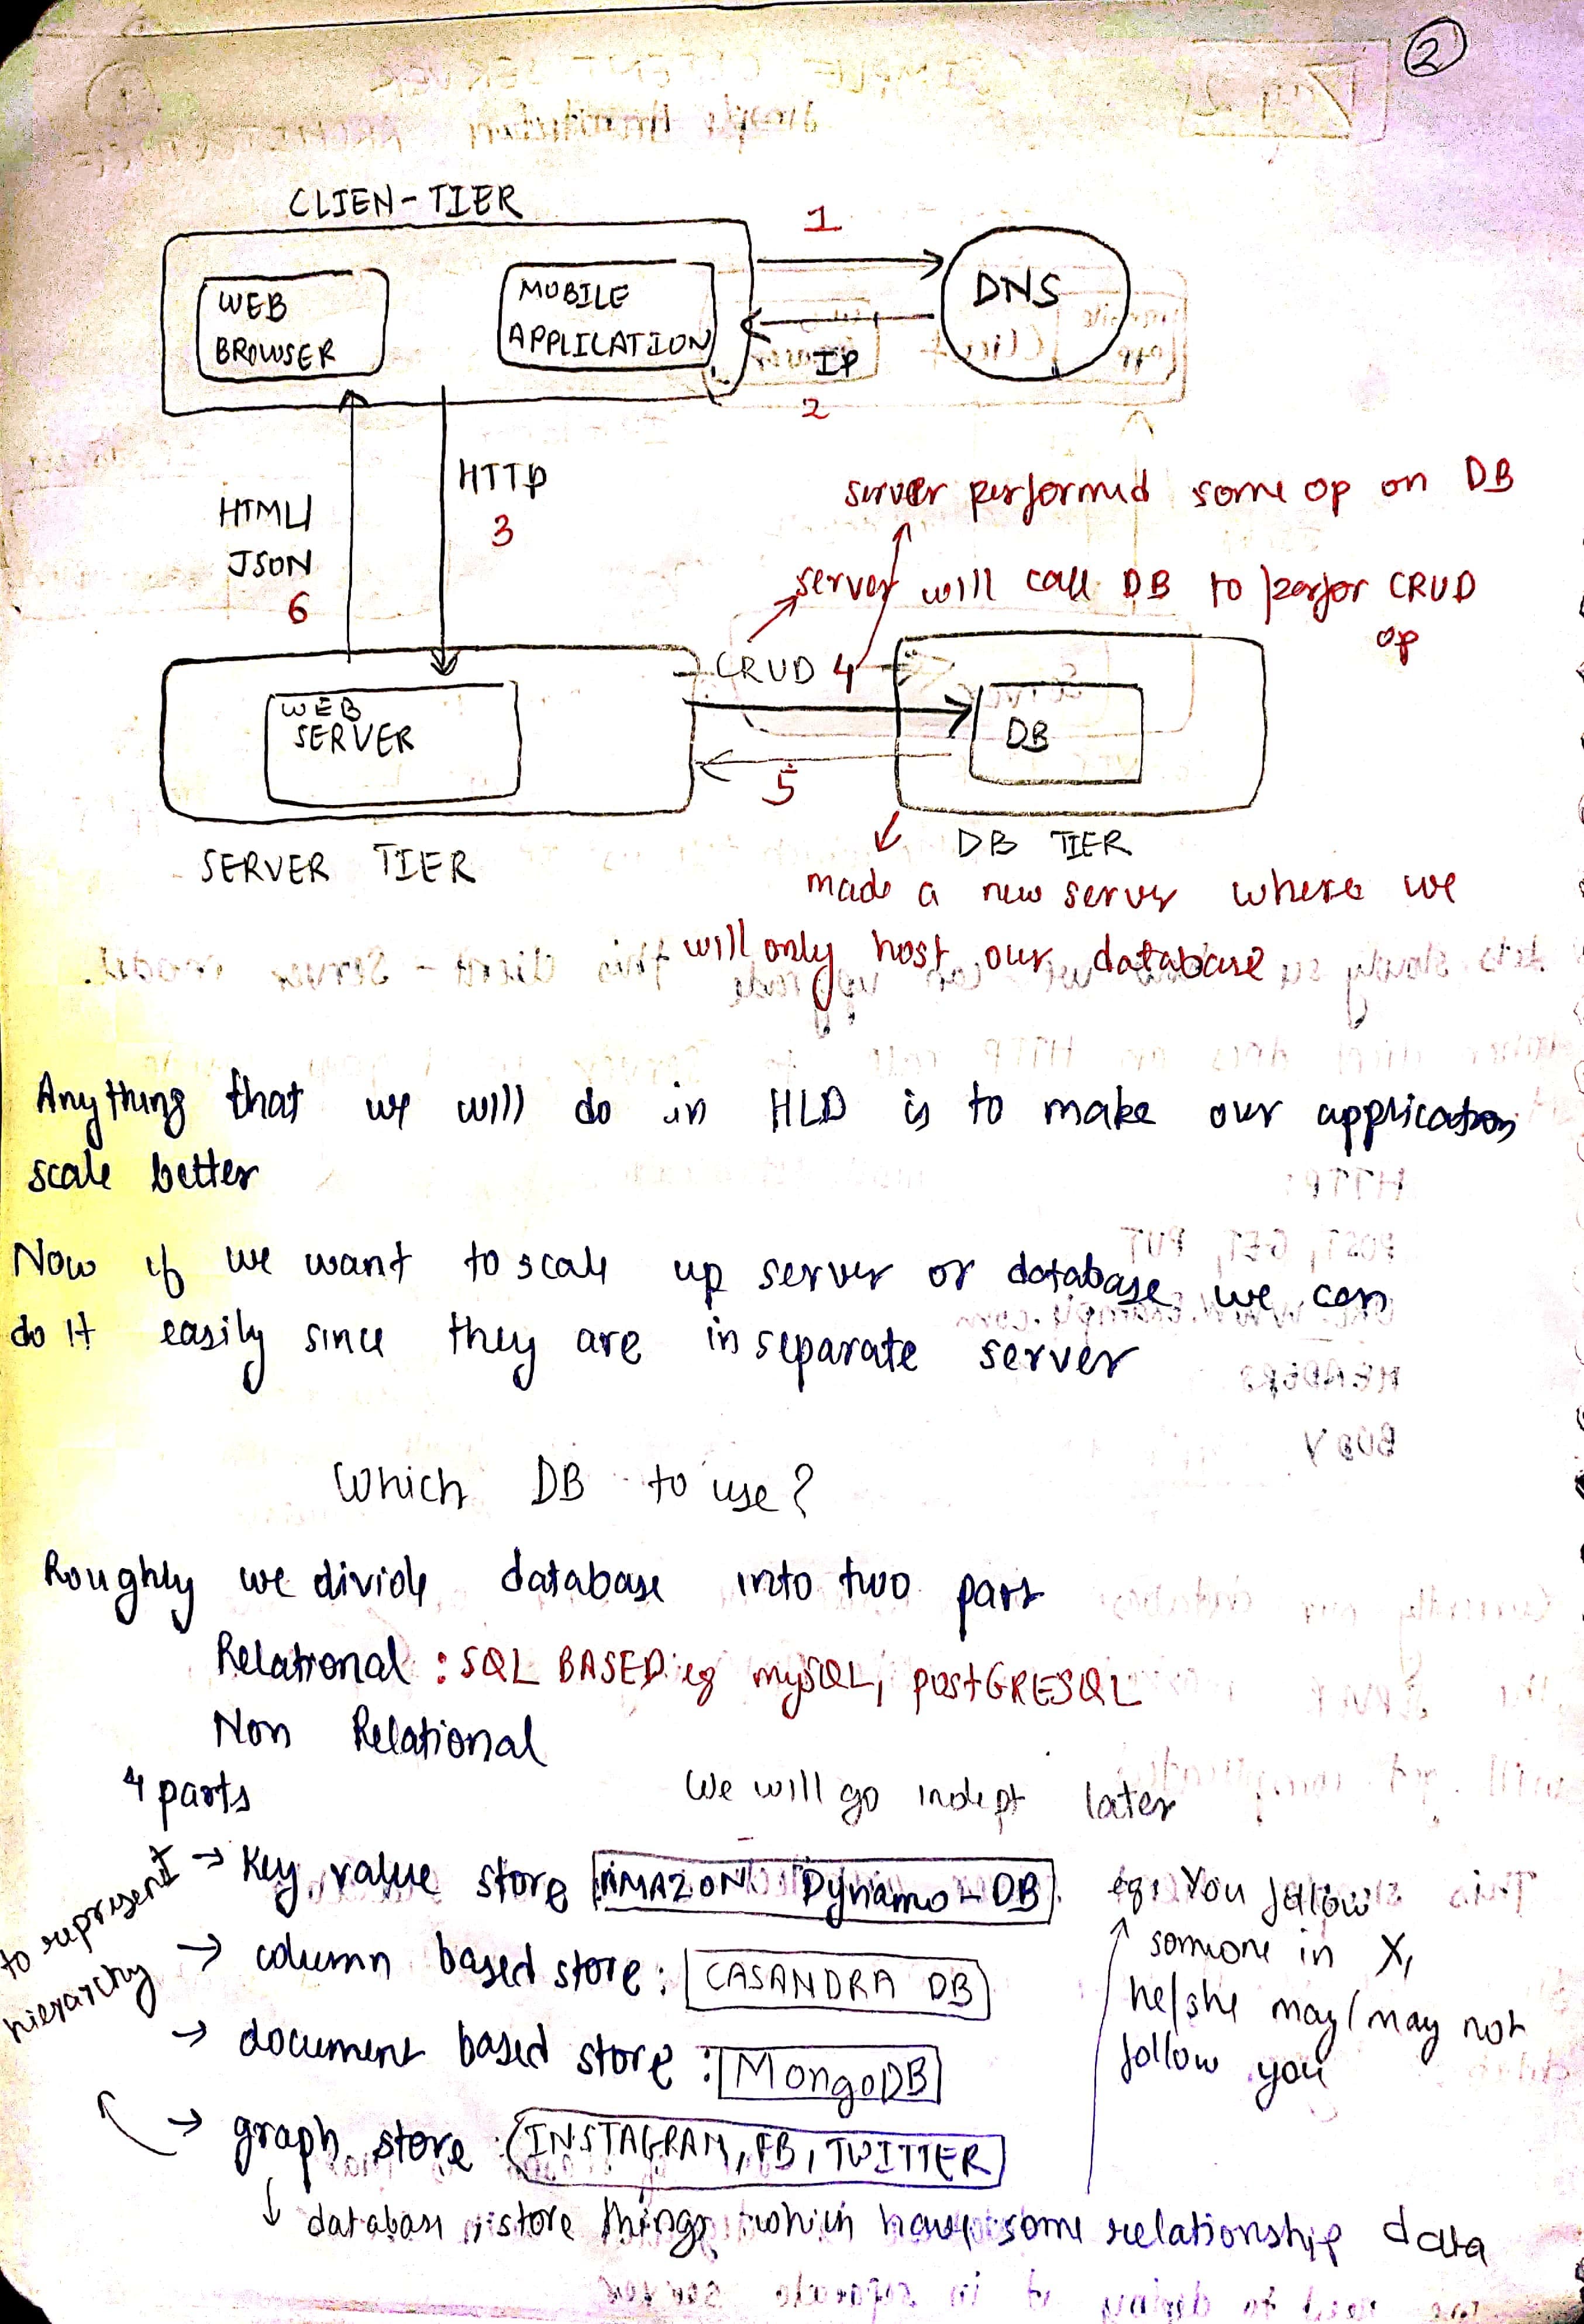 2
CLIEN-TIER
1
WEB
BROWSER
MOBILE
APPLICATION
DNS
IP
2
HTTP
3
HTML/
JSON
6
server performed some op on DB
server will call DB to perfor CRUD
op
CRUD 4
WEB
SERVER
DB
5
SERVER TIER
DB TIER
made a new server where we
will only host our database
Anything that we will do in HLD is to make our application
scale better
Now if we want to scale up server or database we can
do it easily since they are in separate server
Which DB to use?
Roughly we divide database into two part
Relational : SQL BASED eg mySQL, postGRESQL
Non Relational
4 parts
We will go indept later
→ Key value store AMAZON Dynamo-DB
→ column based store : CASANDRA DB
→ document based store : MongoDB
→ graph store : INSTAGRAM, FB, TWITTER
↓ database store things which have some relationship data
to represent
hierarchy
eg, You follow
someone in X,
he/she may/may not
follow you